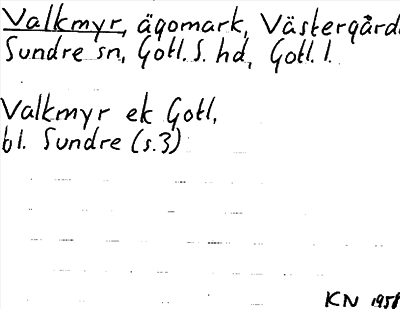 Valkmyr, ägomark, Västergård
Sundre sn, Gotl. S. hd, Gotl. l.
Valkmyr ek Gotl,
bl. Sundre (s.3)
KN 1958